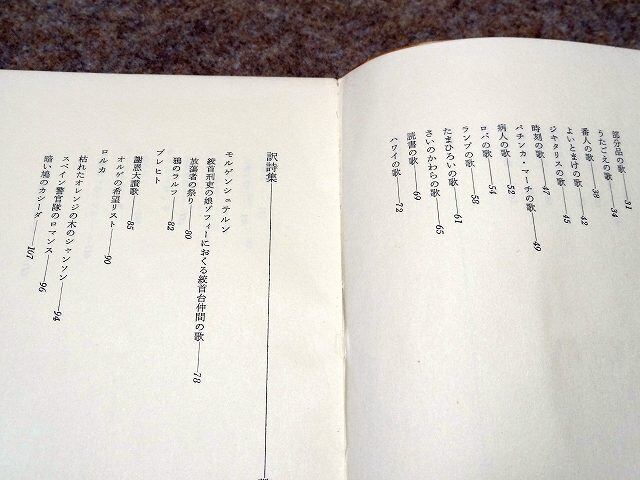 部分品の歌 31
うたごえの歌 34
番人の歌 38
よいとまけの歌 42
ジキタリスの歌 45
時刻の歌 47
パチンカ・マーチの歌 49
病人の歌 52
ロバの歌 54
ランプの歌 58
たまひろいの歌 61
さいのかわらの歌 65
読書の歌 69
ハワイの歌 72
訳詩集
モルゲンシュテルン
絞首刑吏の娘ゾフィーにおくる絞首台仲間の歌 78
放蕩者の祭り 80
鴉のラルフ 82
ブレヒト
謝恩大讃歌 85
オルゲの希望リスト 90
ロルカ
枯れたオレンジの木のシャンソン 94
スペイン警官隊のロマンス 96
暗い鳩のカシーダ 107